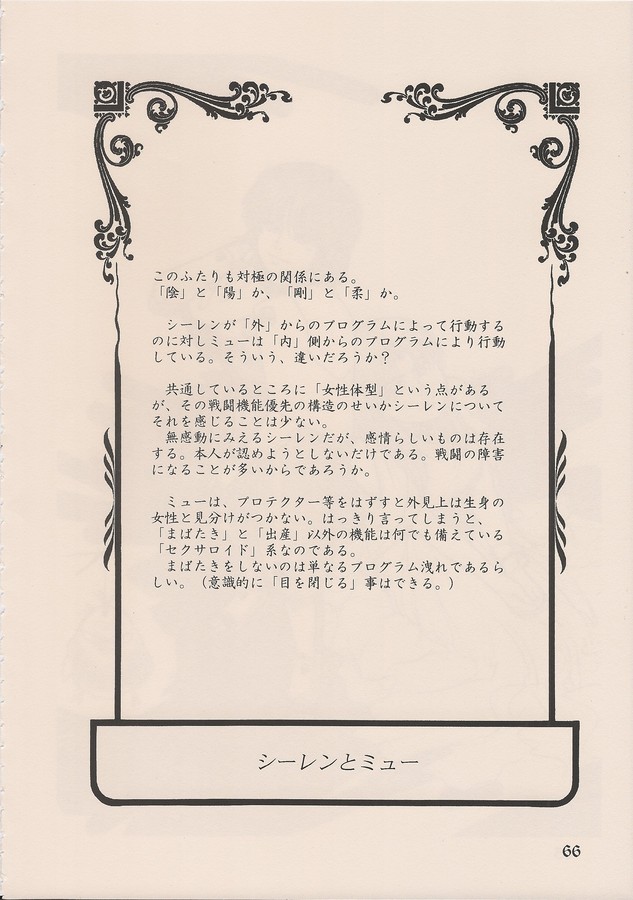 このふたりも対極の関係にある。
「陰」と「陽」か、「剛」と「柔」か。
シーレンが「外」からのプログラムによって行動する
のに対しミューは「内」側からのプログラムにより行動
している。そういう、違いだろうか？
共通しているところに「女性体型」という点がある
が、その戦闘機能優先の構造のせいかシーレンについて
それを感じることは少ない。
無感動にみえるシーレンだが、感情らしいものは存在
する。本人が認めようとしないだけである。戦闘の障害
になることが多いからであろうか。
ミューは、プロテクター等をはずすと外見上は生身の
女性と見分けがつかない。はっきり言ってしまうと、
「まばたき」と「出産」以外の機能は何でも備えている
「セクサロイド」系なのである。
まばたきをしないのは単なるプログラム洩れであるら
しい。（意識的に「目を閉じる」事はできる。）
シーレンとミュー
66